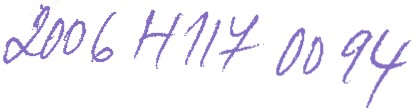 2006 H117 0094